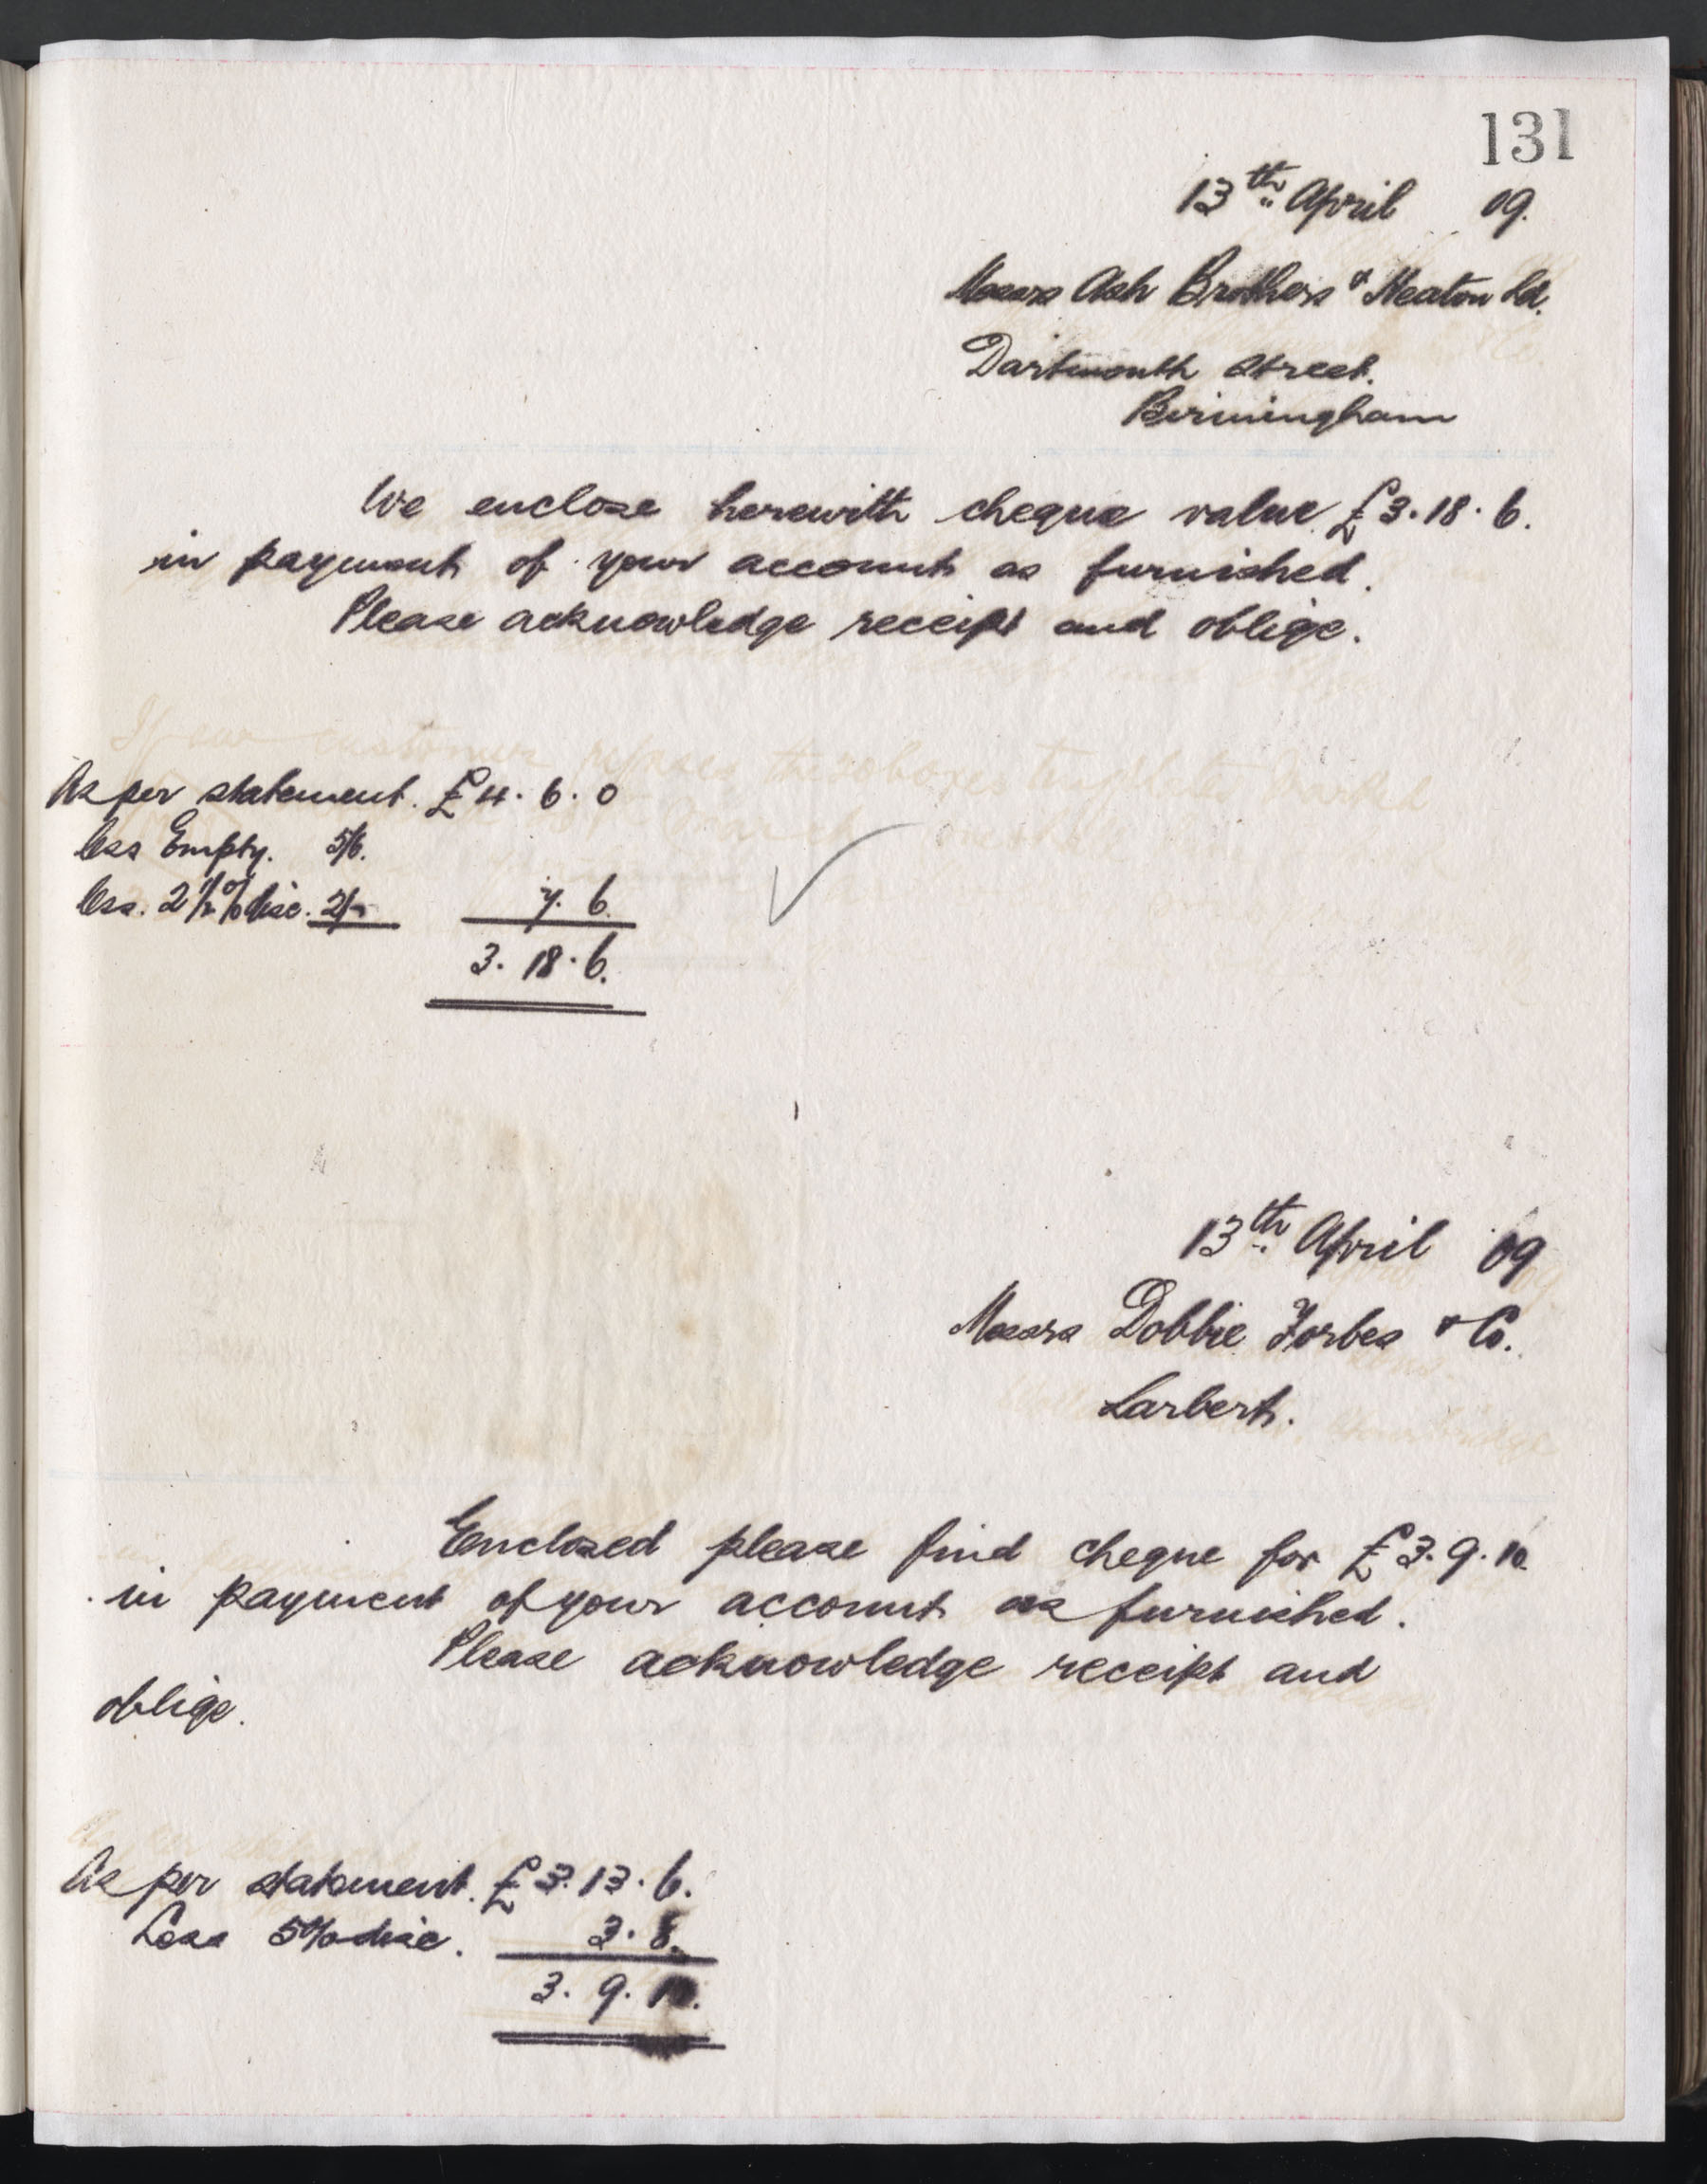 131
13th April 09.
Messrs Ash Brothers & Heaton Ld.
Dartmouth Street.
Birmingham
We enclose herewith cheque value £3.18.6.
in payment of your account as furnished.
Please acknowledge receipt and oblige.
As per statement. £4.6.0
less Empty. 5/6.
less. 2 1/2 % disc. 2/- 7.6.
3.18.6.
13th April 09
Messrs Dobbie Forbes & Co.
Larbert.
Enclosed please find cheque for £3.9.10
in payment of your account as furnished.
Please acknowledge receipt and
oblige.
As per statement. £3.13.6.
Less 5% disc. 3.8.
3.9.10.